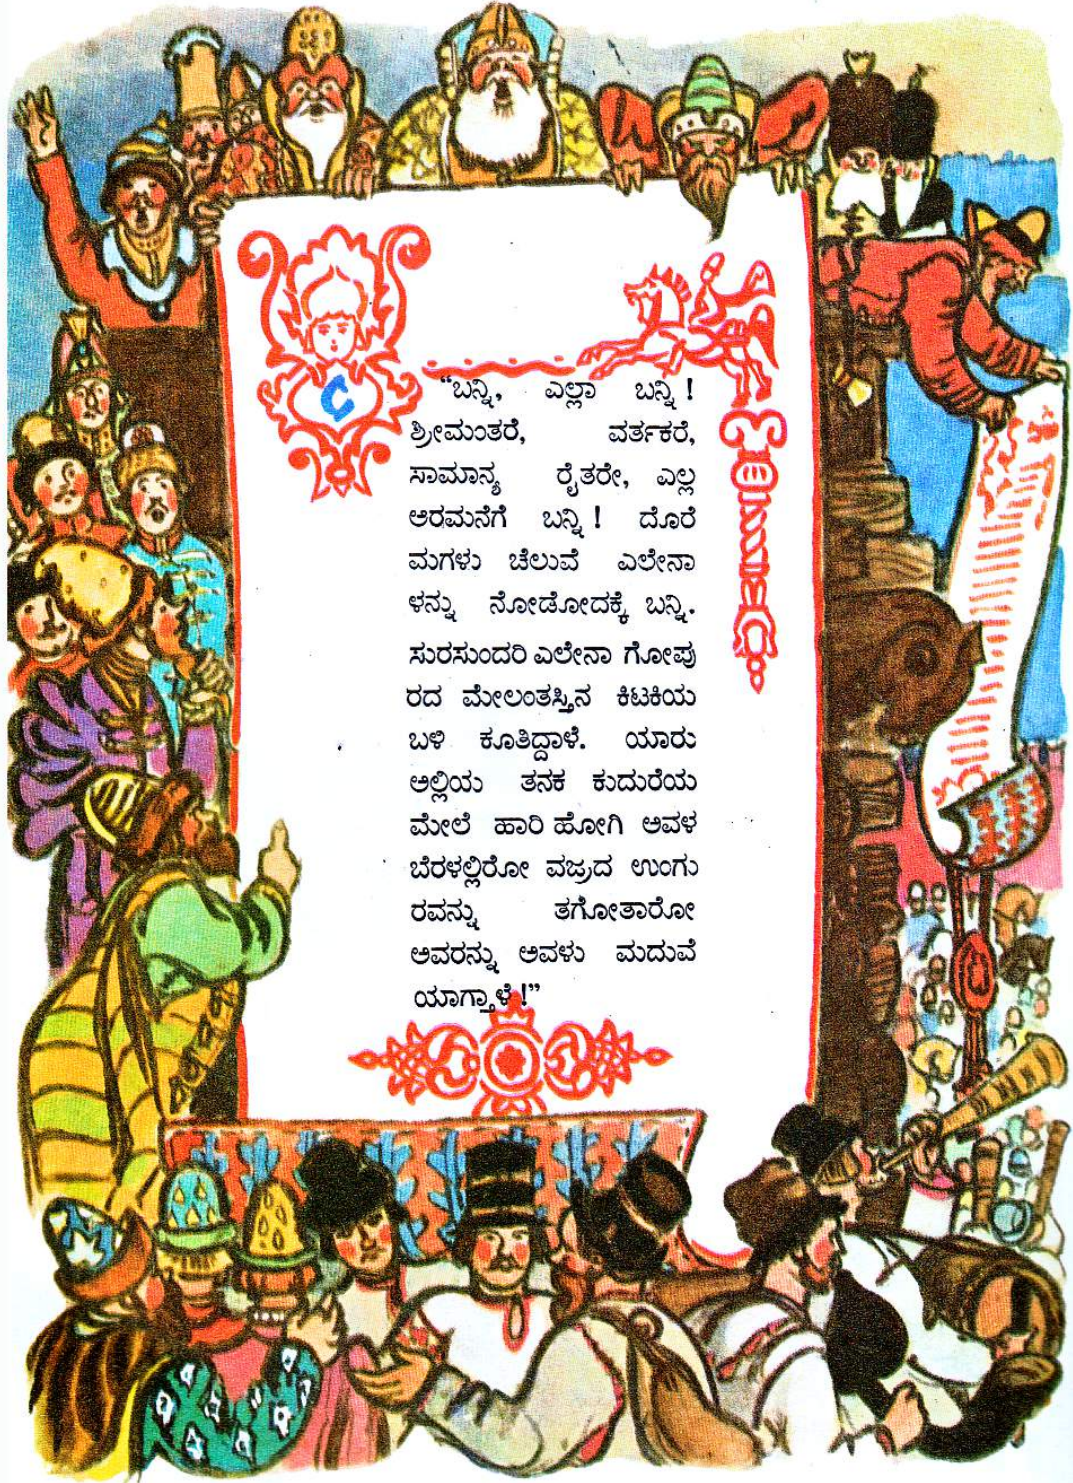 С
“ಬನ್ನಿ, ಎಲ್ಲಾ ಬನ್ನಿ !
ಶ್ರೀಮಂತರೆ, ವರ್ತಕರೆ,
ಸಾಮಾನ್ಯ ರೈತರೇ, ಎಲ್ಲ
ಅರಮನೆಗೆ ಬನ್ನಿ ! ದೊರೆ
ಮಗಳು ಚೆಲುವೆ ಎಲೇನಾ
ಳನ್ನು ನೋಡೋದಕ್ಕೆ ಬನ್ನಿ.
ಸುರಸುಂದರಿ ಎಲೇನಾ ಗೋಪು
ರದ ಮೇಲಂತಸ್ತಿನ ಕಿಟಕಿಯ
ಬಳಿ ಕೂತಿದ್ದಾಳೆ. ಯಾರು
ಅಲ್ಲಿಯ ತನಕ ಕುದುರೆಯ
ಮೇಲೆ ಹಾರಿ ಹೋಗಿ ಅವಳ
ಬೆರಳಲ್ಲಿರೋ ವಜ್ರದ ಉಂಗು
ರವನ್ನು ತಗೋತಾರೋ
ಅವರನ್ನು ಅವಳು ಮದುವೆ
ಯಾಗ್ತಾಳೆ !”